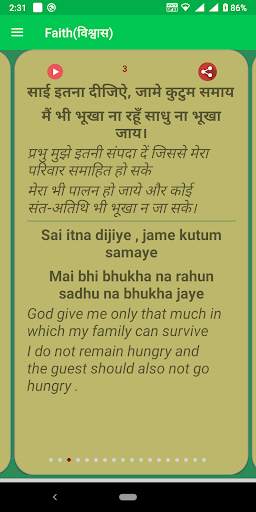 2:31
Faith(विश्वास)
3
साई इतना दीजिऐ, जामे कुटुम समाय
मैं भी भूखा ना रहूँ साधु ना भूखा
जाय।
प्रभु मुझे इतनी संपदा दें जिससे मेरा
परिवार समाहित हो सके
मेरा भी पालन हो जाये और कोई
संत-अतिथि भी भूखा न जा सके।
Sai itna dijiye , jame kutum
samaye
Mai bhi bhukha na rahun
sadhu na bhukha jaye
God give me only that much in
which my family can survive
I do not remain hungry and
the guest should also not go
hungry .